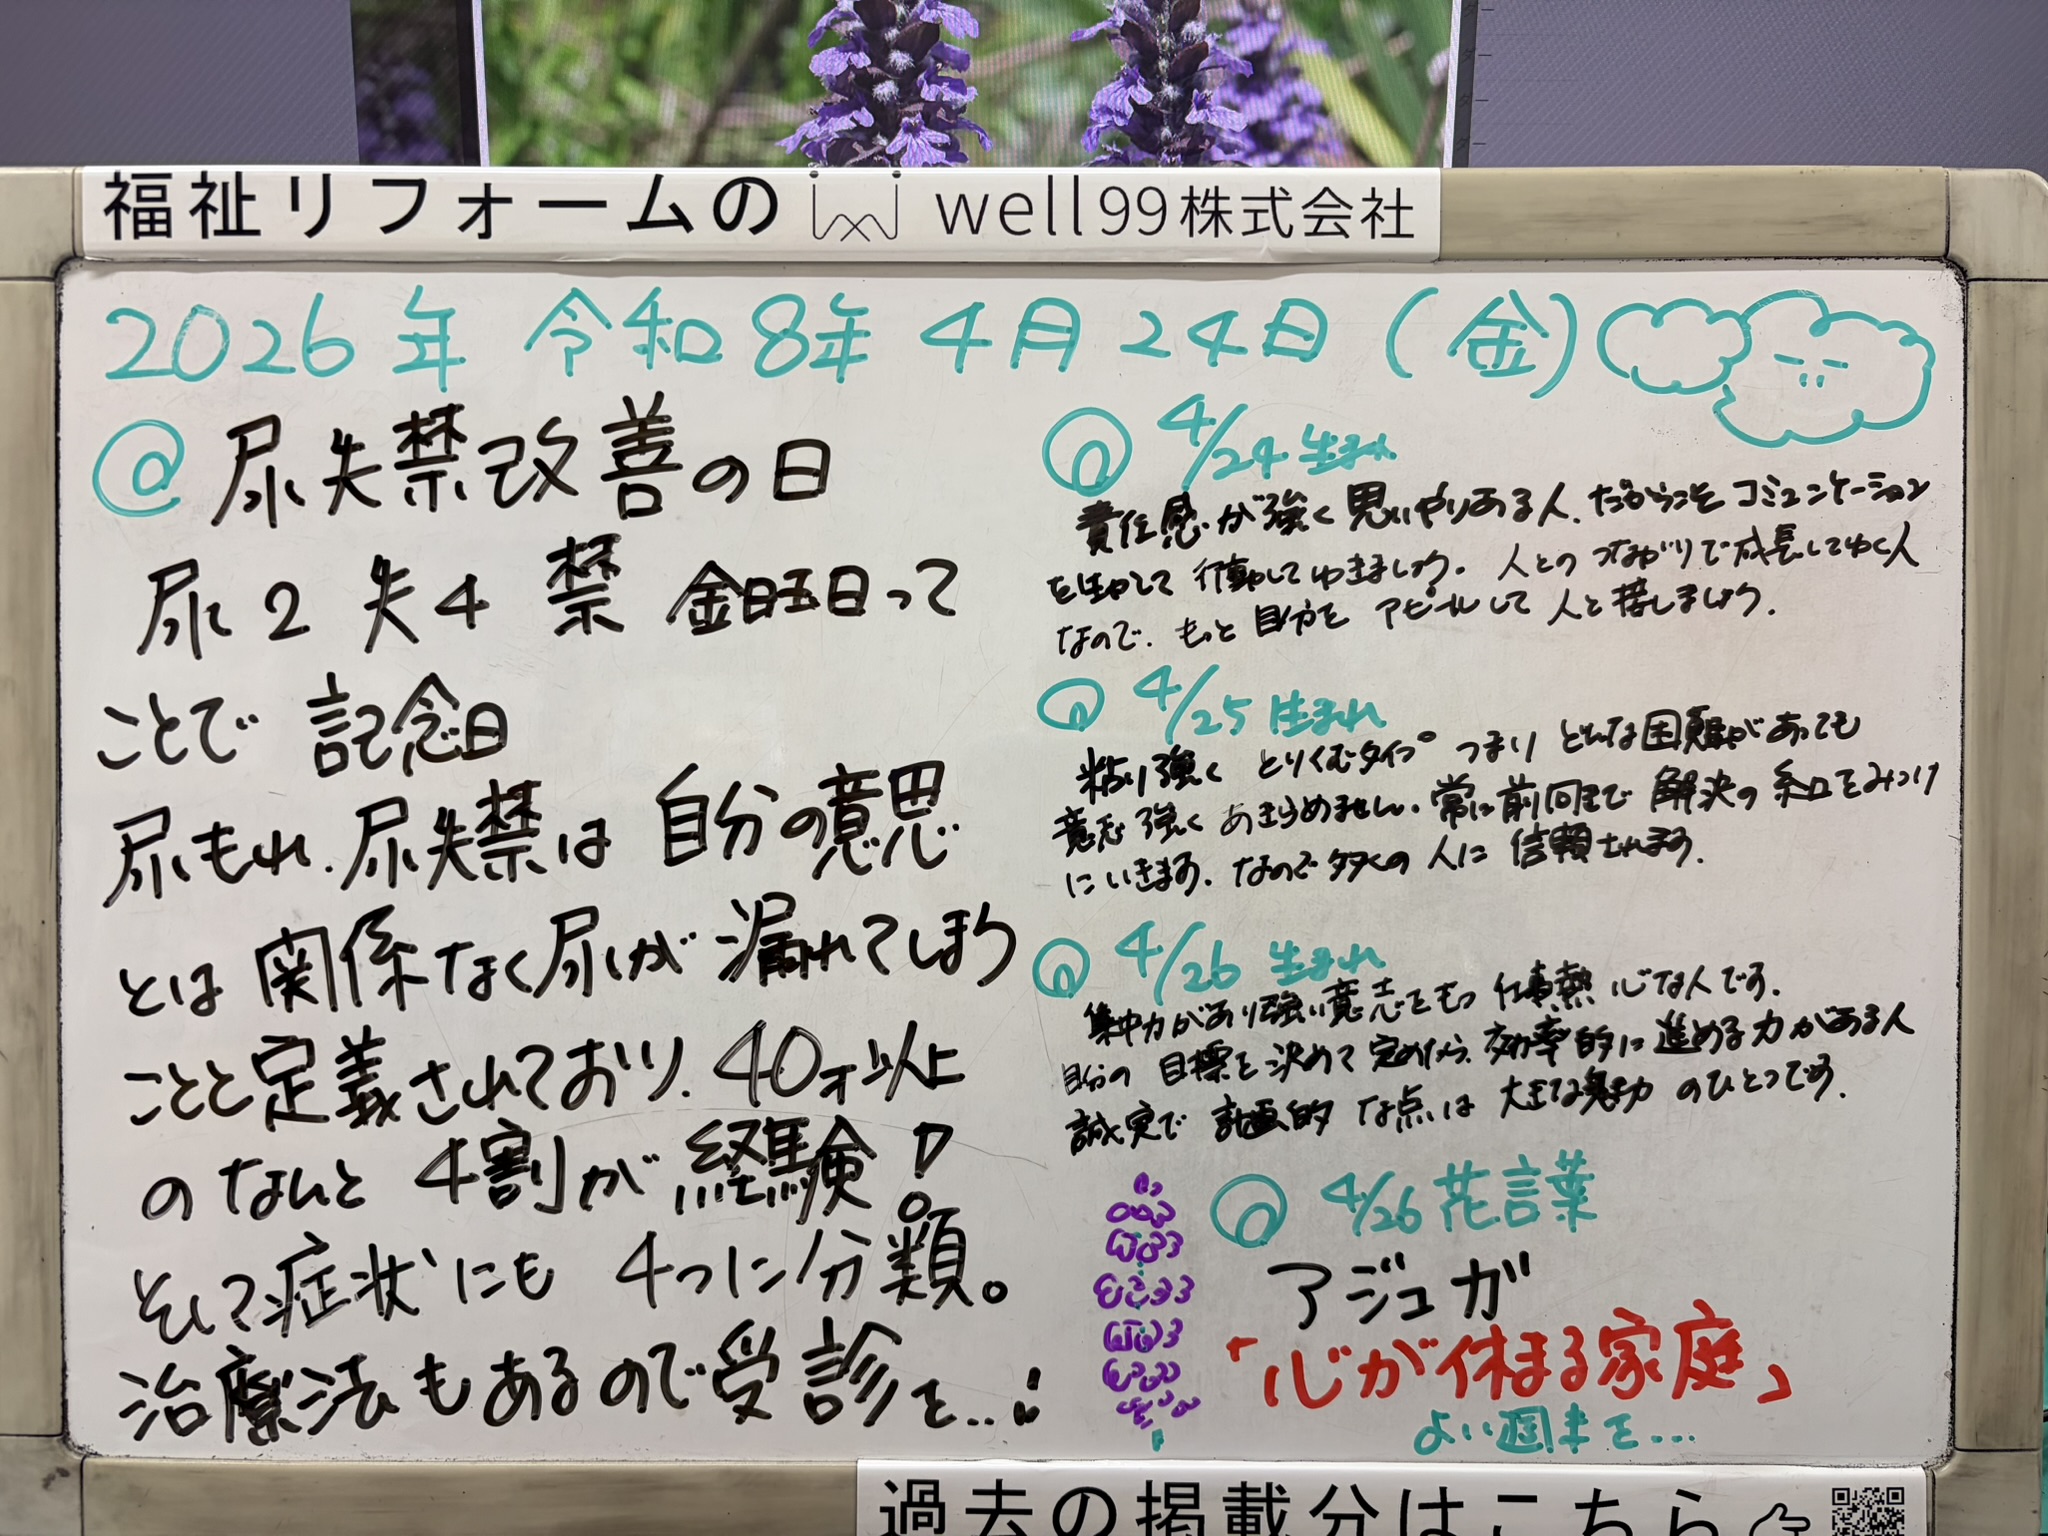 福祉リフォームの well99株式会社
2026年 令和8年 4月24日(金)
@尿失禁改善の日
尿2 失4 禁 金曜日って
ことで 記念日
尿もれ、尿失禁は 自分の意思
とは 関係なく尿が 漏れてしまう
ことと定義されており、40才以上
のなんと 4割が経験!
そして症状にも 4つに分類。
治療法もあるので受診を...!
@ 4/24 生まれ
責任感が強く思いやりある人、だからこそ コミュニケーション
を生かして 行動してゆきましょう。人とのつながりで成長してゆく人
なので、もっと 自分を アピールして 人と接しましょう。
@ 4/25 生まれ
粘り強く とりくむタイプ つまり どんな困難があっても
意志強く あきらめません。常に前向きで 解決の糸口をみつけ
にいきます。なので多くの人に 信頼されます。
@ 4/26 生まれ
集中力があり強い意志をもつ 仕事熱心な人です。
自分の 目標を決めて 定めたら、効率的に進める力がある人
誠実で 計画的 な点は 大きな魅力 のひとつです。
@ 4/26 花言葉
アジュガ
「心が休まる家庭」
よい週末を...
過去の掲載分はこちら